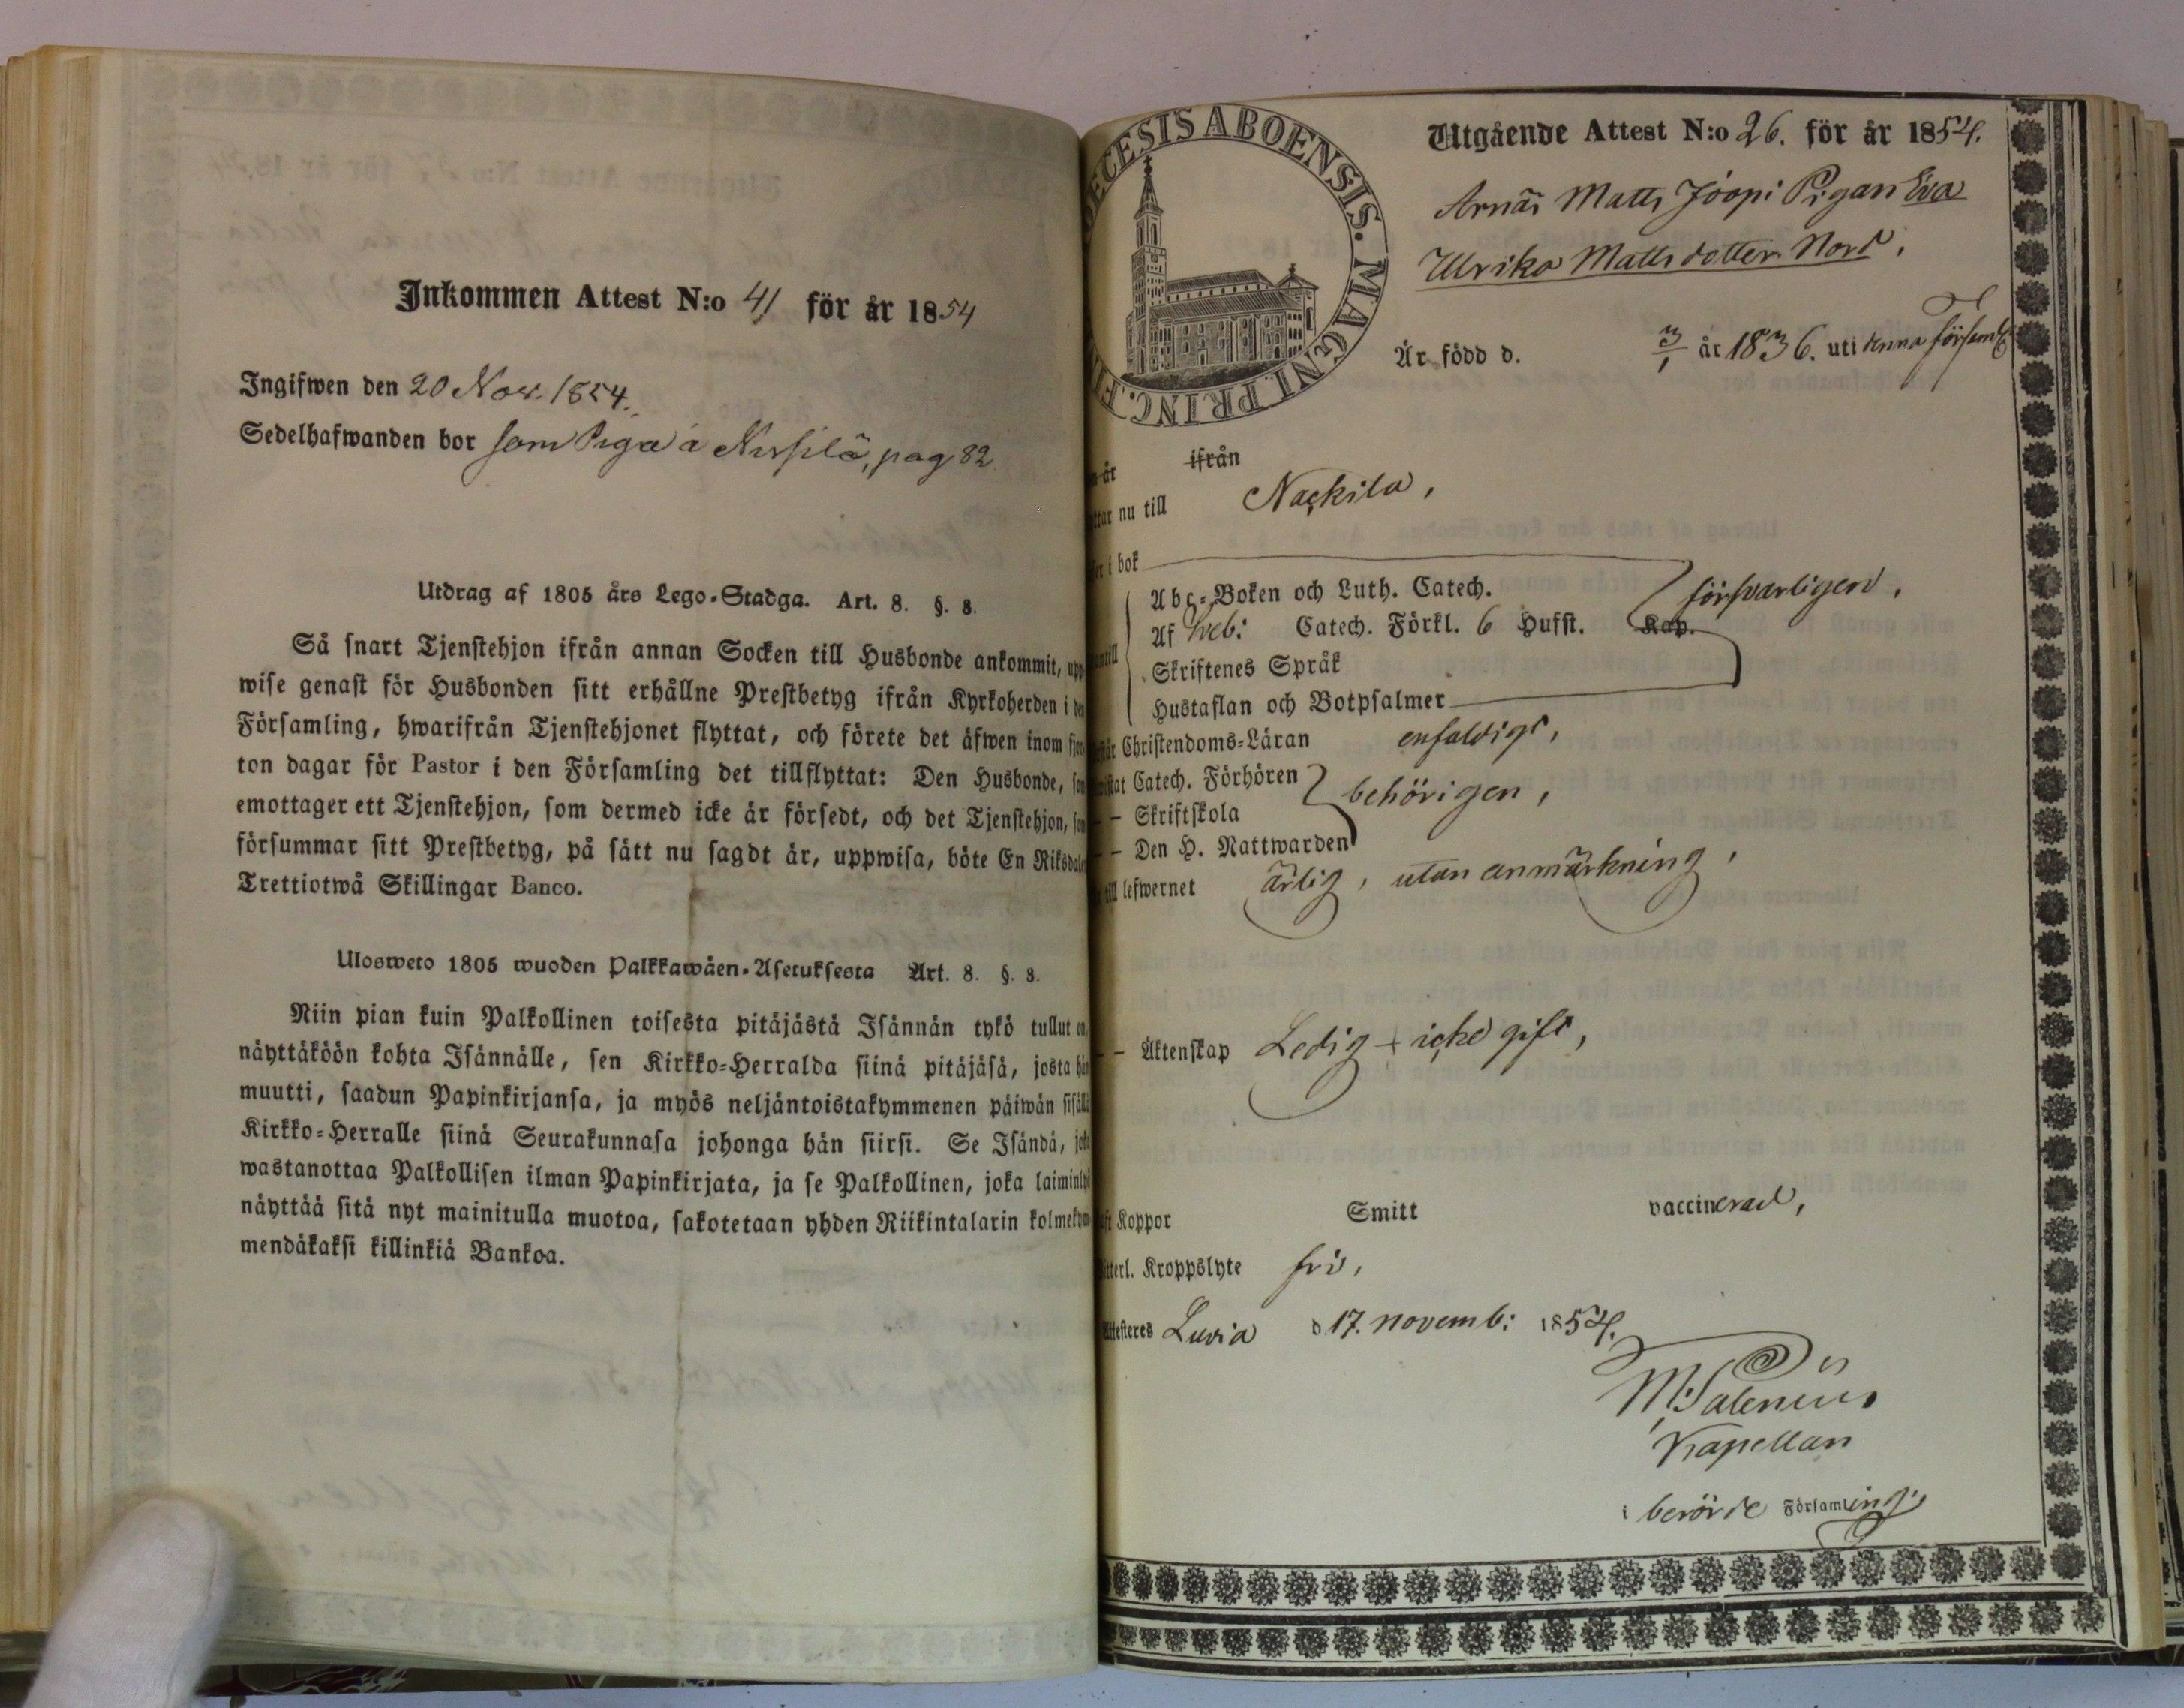 Inkommen Attest N:o 41 för år 1854
Ingifwen den 20 Nov. 1854.
Sedelhafwanden bor som Piga å pag 82
Utdrag af 1805 års Lego-Stadga. Art. 8. §. 8.
Så snart Tjenstehjon ifrån annan Socken till Husbonde ankommit, upp-
wise genast för Husbonden sitt erhållne Prestbetyg ifrån Kyrkoherden i den
Församling, hwarifrån Tjenstehjonet flyttat, och förete det äfwen inom fjor-
ton dagar för Pastor i den Församling det tillflyttat: Den Husbonde, som
emottager ett Tjenstehjon, som dermed icke är försedt, och det Tjenstehjon, som
försummar sitt Prestbetyg, på sätt nu sagdt är, uppwisa, böte En Riksdaler
Trettiotwå Skillingar Banco.
Ulosweto 1805 wuoden Palkkawäen-Asetuksesta Art. 8. §. 8.
Niin pian kuin Palkollinen toisesta pitäjästä Isännän tykö tullut on,
näyttäköön kohta Isännälle, sen Kirkko-Herralda siinä pitäjäsä, josta hän
muutti, saadun Papinkirjansa, ja myös neljäntoistakymmenen päiwän sisällä
Kirkko-Herralle siinä Seurakunnasa johonga hän siirsi. Se Isändä, joka
wastanottaa Palkollisen ilman Papinkirjata, ja se Palkollinen, joka laiminlyö
näyttää sitä nyt mainitulla muotoa, sakotetaan yhden Riikintalarin kolmekym-
mendäkaksi killinkiä Bankoa.
ECESIS ABOENSIS. MAGNI PRINC. FI
Utgående Attest N:o 26. för år 1854.
Arnäs Matts Joopi Pigan Eva
Ulrika Mattsdotter Nord,
Är född d. 3/1 år 1836. uti denna Församl:
ifrån
nu till Nackila,
i bok
Abc-Boken och Luth. Catech. försvarligen,
Af Sveb: Catech. Förkl. 6 Hufst. Kap.
Skriftenes Språk
Hustaflan och Botpsalmer
Christendoms-Läran enfaldigt,
Catech. Förhören behörigen,
– Skriftskola
– Den H. Nattwarden
till lefwernet ärlig, utan anmärkning,
– Äktenskap Ledig + icke gift,
Koppor Smitt vaccinerad,
Kroppslyte fri,
Attesteres Luvia d. 17. novemb: 1854.
M: Salenius
Kapellan
i berörde Församling.